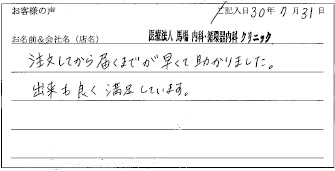 お客様の声
ご記入日30年7月31日
お名前&会社名(店名) 医療法人 馬場 内科・循環器内科 クリニック
注文してから届くまでが早くて助かりました。
出来も良く満足しています。